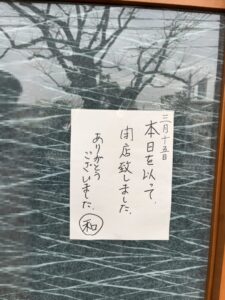 三月十五日
本日を以って、
閉店致しました、
ありがとう
ございました、
和